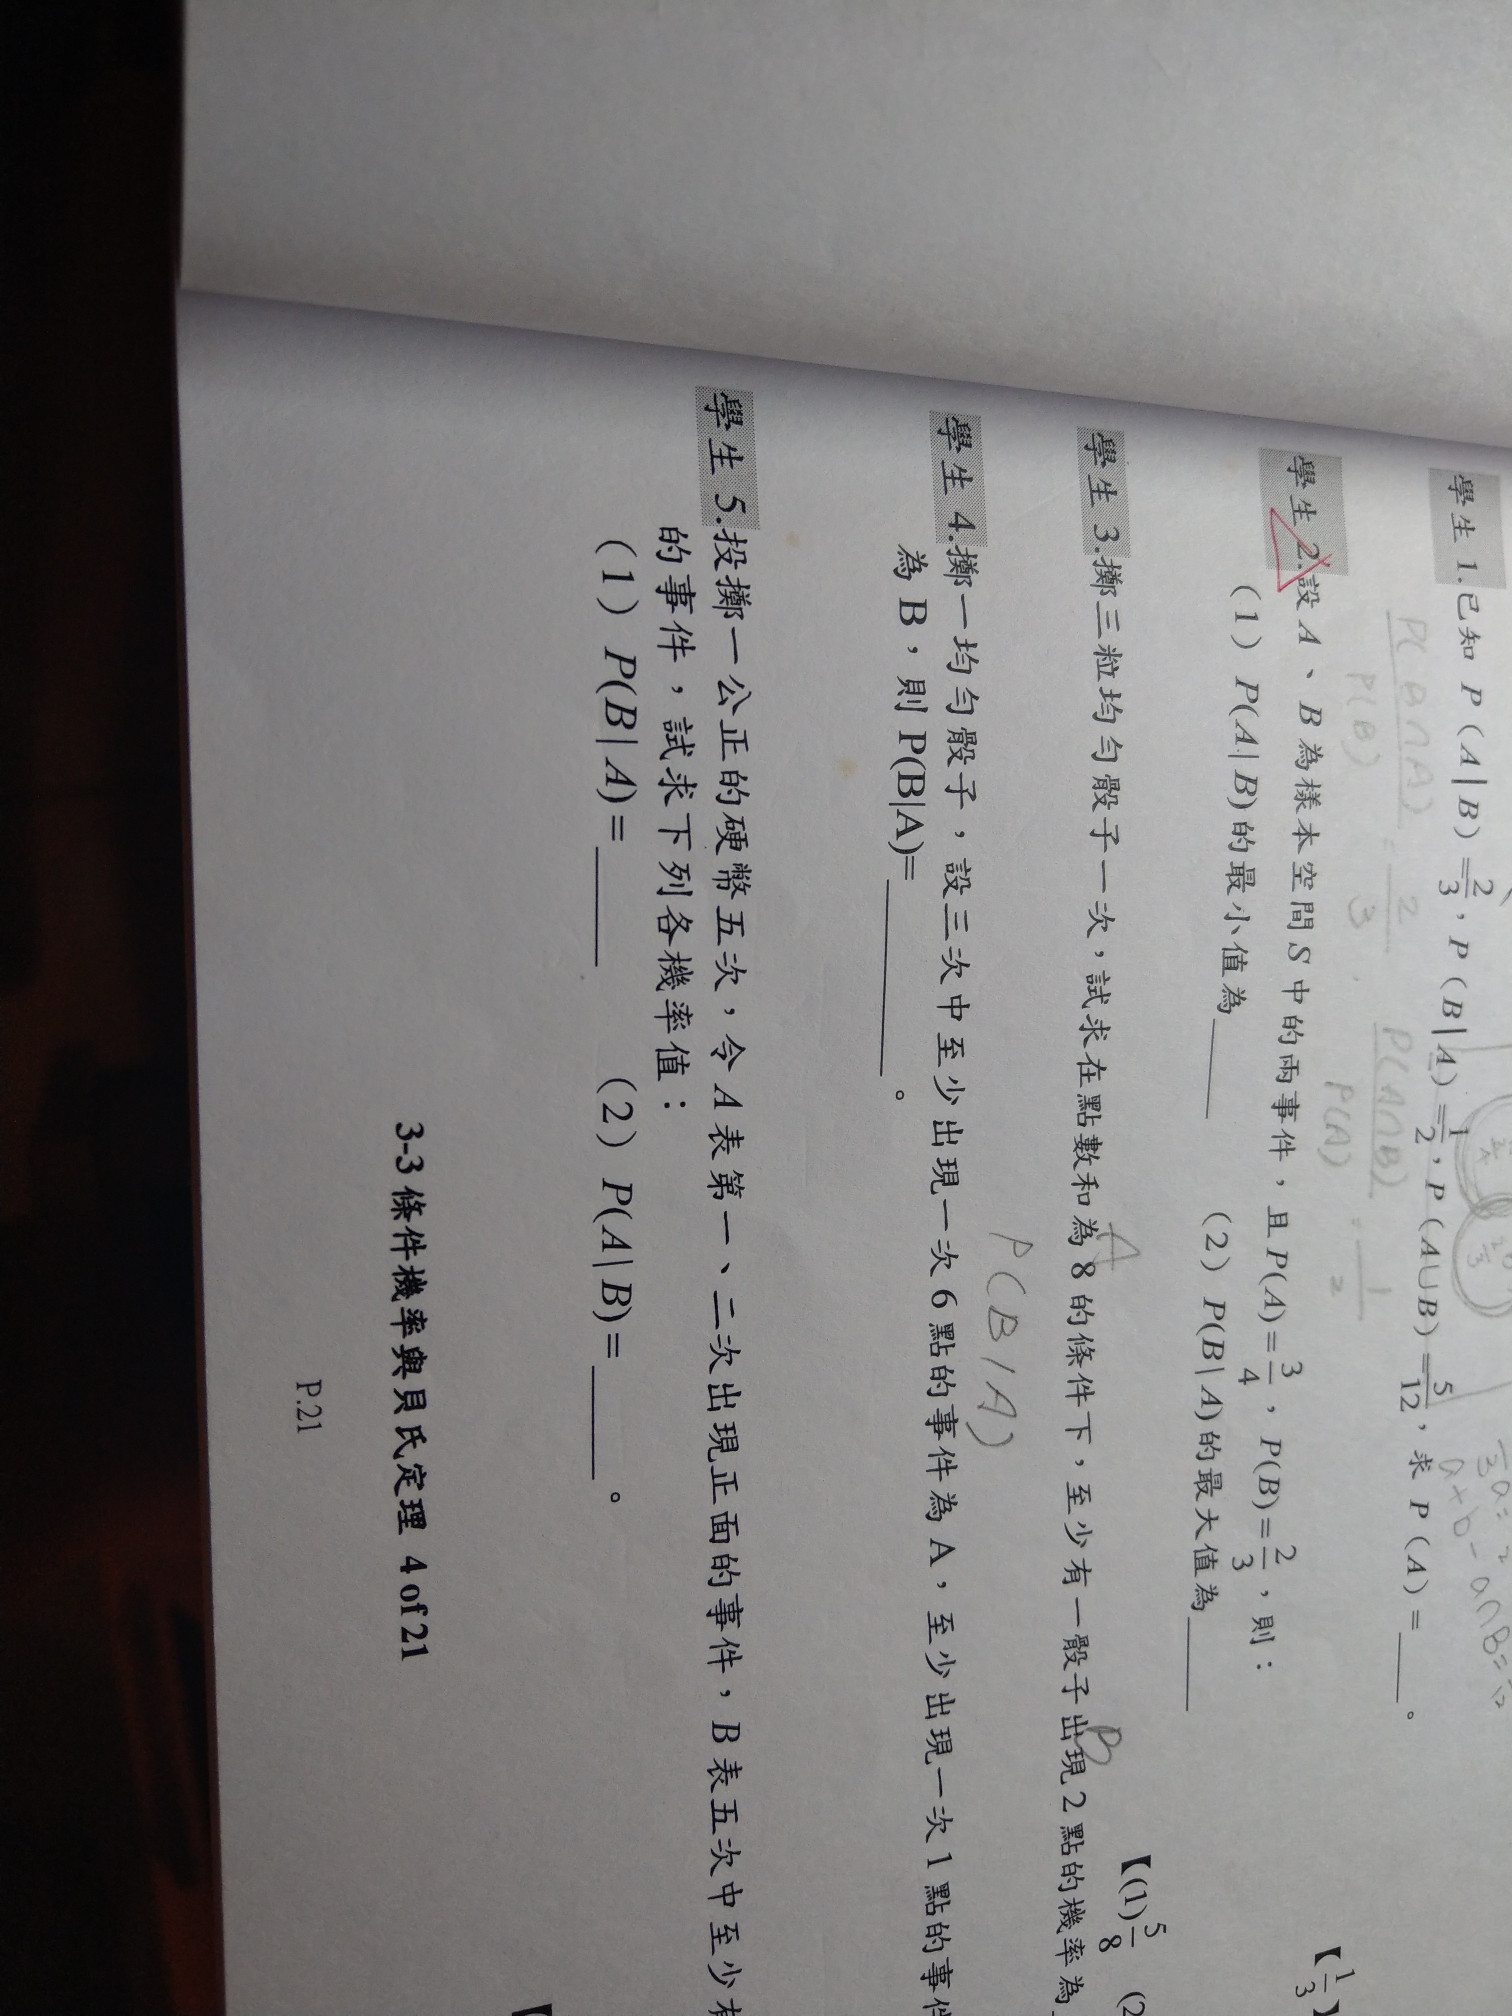 學生 1.已知 P(A|B)=2/3，P(B|A)=1/2，P(A∪B)=5/12，求 P(A)=____。
【1/3】
P(B∩A)/P(B) = 2/3, P(A∩B)/P(A) = 1/2
學生 2.設 A、B 為樣本空間 S 中的兩事件，且 P(A)=3/4，P(B)=2/3，則：
(1) P(A|B)的最小值為____ (2) P(B|A)的最大值為____
【(1)5/8 (2
A B
學生 3.擲三粒均勻骰子一次，試求在點數和為 8 的條件下，至少有一骰子出現 2 點的機率為
P(B/A)
學生 4.擲一均勻骰子，設三次中至少出現一次 6 點的事件為 A，至少出現一次 1 點的事件
為 B，則 P(B|A)=________。
學生 5.投擲一公正的硬幣五次，令 A 表第一、二次出現正面的事件，B 表五次中至少有
的事件，試求下列各機率值：
(1) P(B|A)=____ (2) P(A|B)=____。
【
3-3 條件機率與貝氏定理 4 of 21
P.21